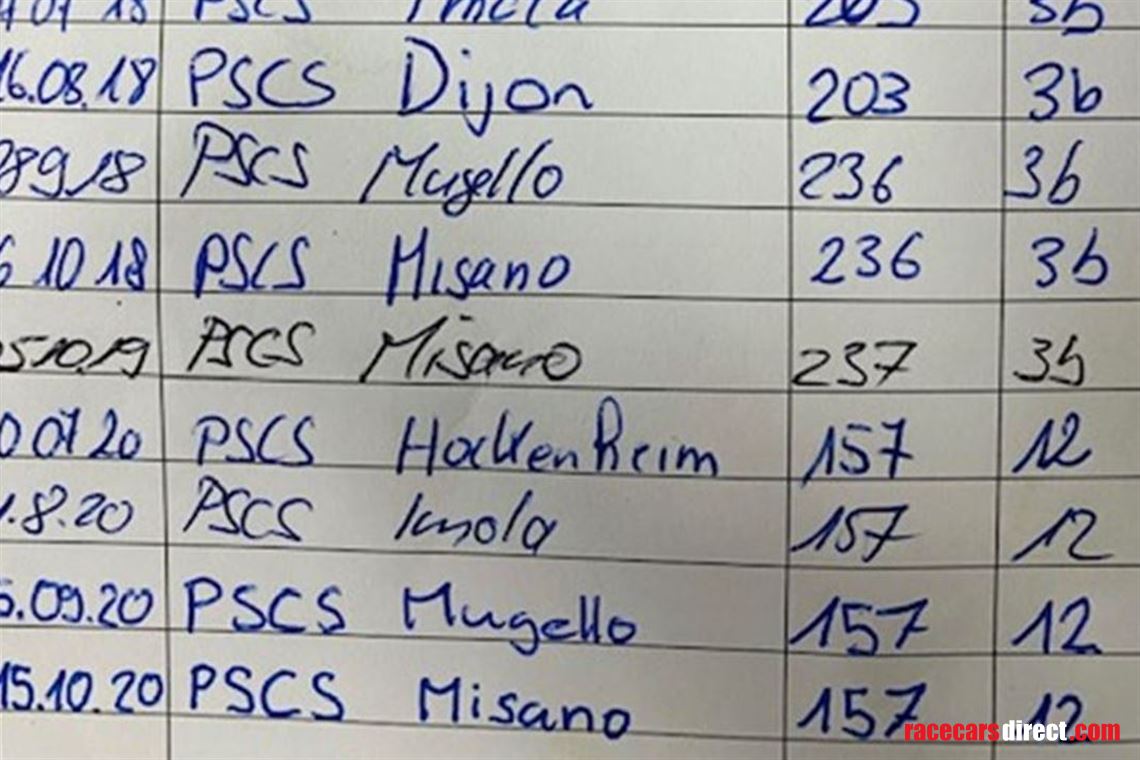 PSCS Imola 203 3b
16.08.18 PSCS Dijon 203 3b
28 9.18 PSCS Mugello 236 3b
6 10 18 PSCS Misano 236 3b
05.10.19 PSCS Misano 237 3b
0 07 20 PSCS Hockenheim 157 12
1.8.20 PSCS Imola 157 12
5.09.20 PSCS Mugello 157 12
15.10.20 PSCS Misano 157 12
racecarsdirect.com